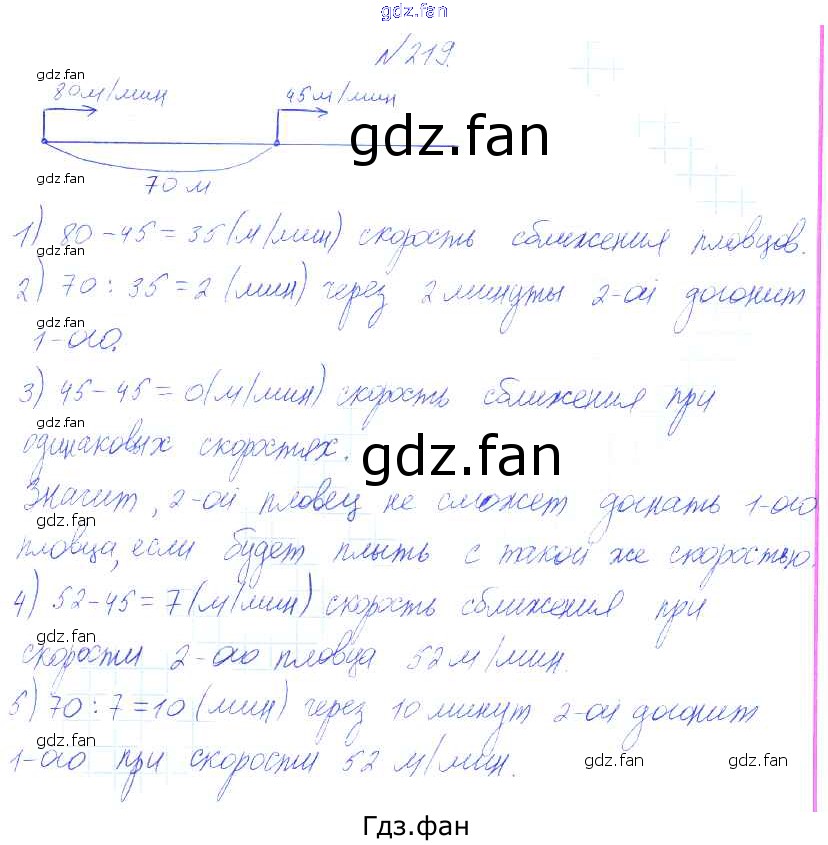 gdz.fan
№219.
gdz.fan
80м/мин 45м/мин
gdz.fan
gdz.fan
70 м
1) 80-45=35(м/мин) скорость сближения пловцов.
gdz.fan
2) 70:35=2 (мин) через 2 минуты 2-ой догонит
gdz.fan
1-ого.
3) 45-45=0(м/мин) скорость сближения при
gdz.fan
одинаковых скоростях.
gdz.fan
Значит, 2-ой пловец не сможет догнать 1-ого
gdz.fan
пловца, если будет плыть с такой же скоростью.
4) 52-45=7(м/мин) скорость сближения при
gdz.fan
скорости 2-ого пловца 52м/мин.
5) 70:7=10 (мин) через 10 минут 2-ой догонит
gdz.fan
1-ого при скорости 52 м/мин.
gdz.fan gdz.fan
Гдз.фан